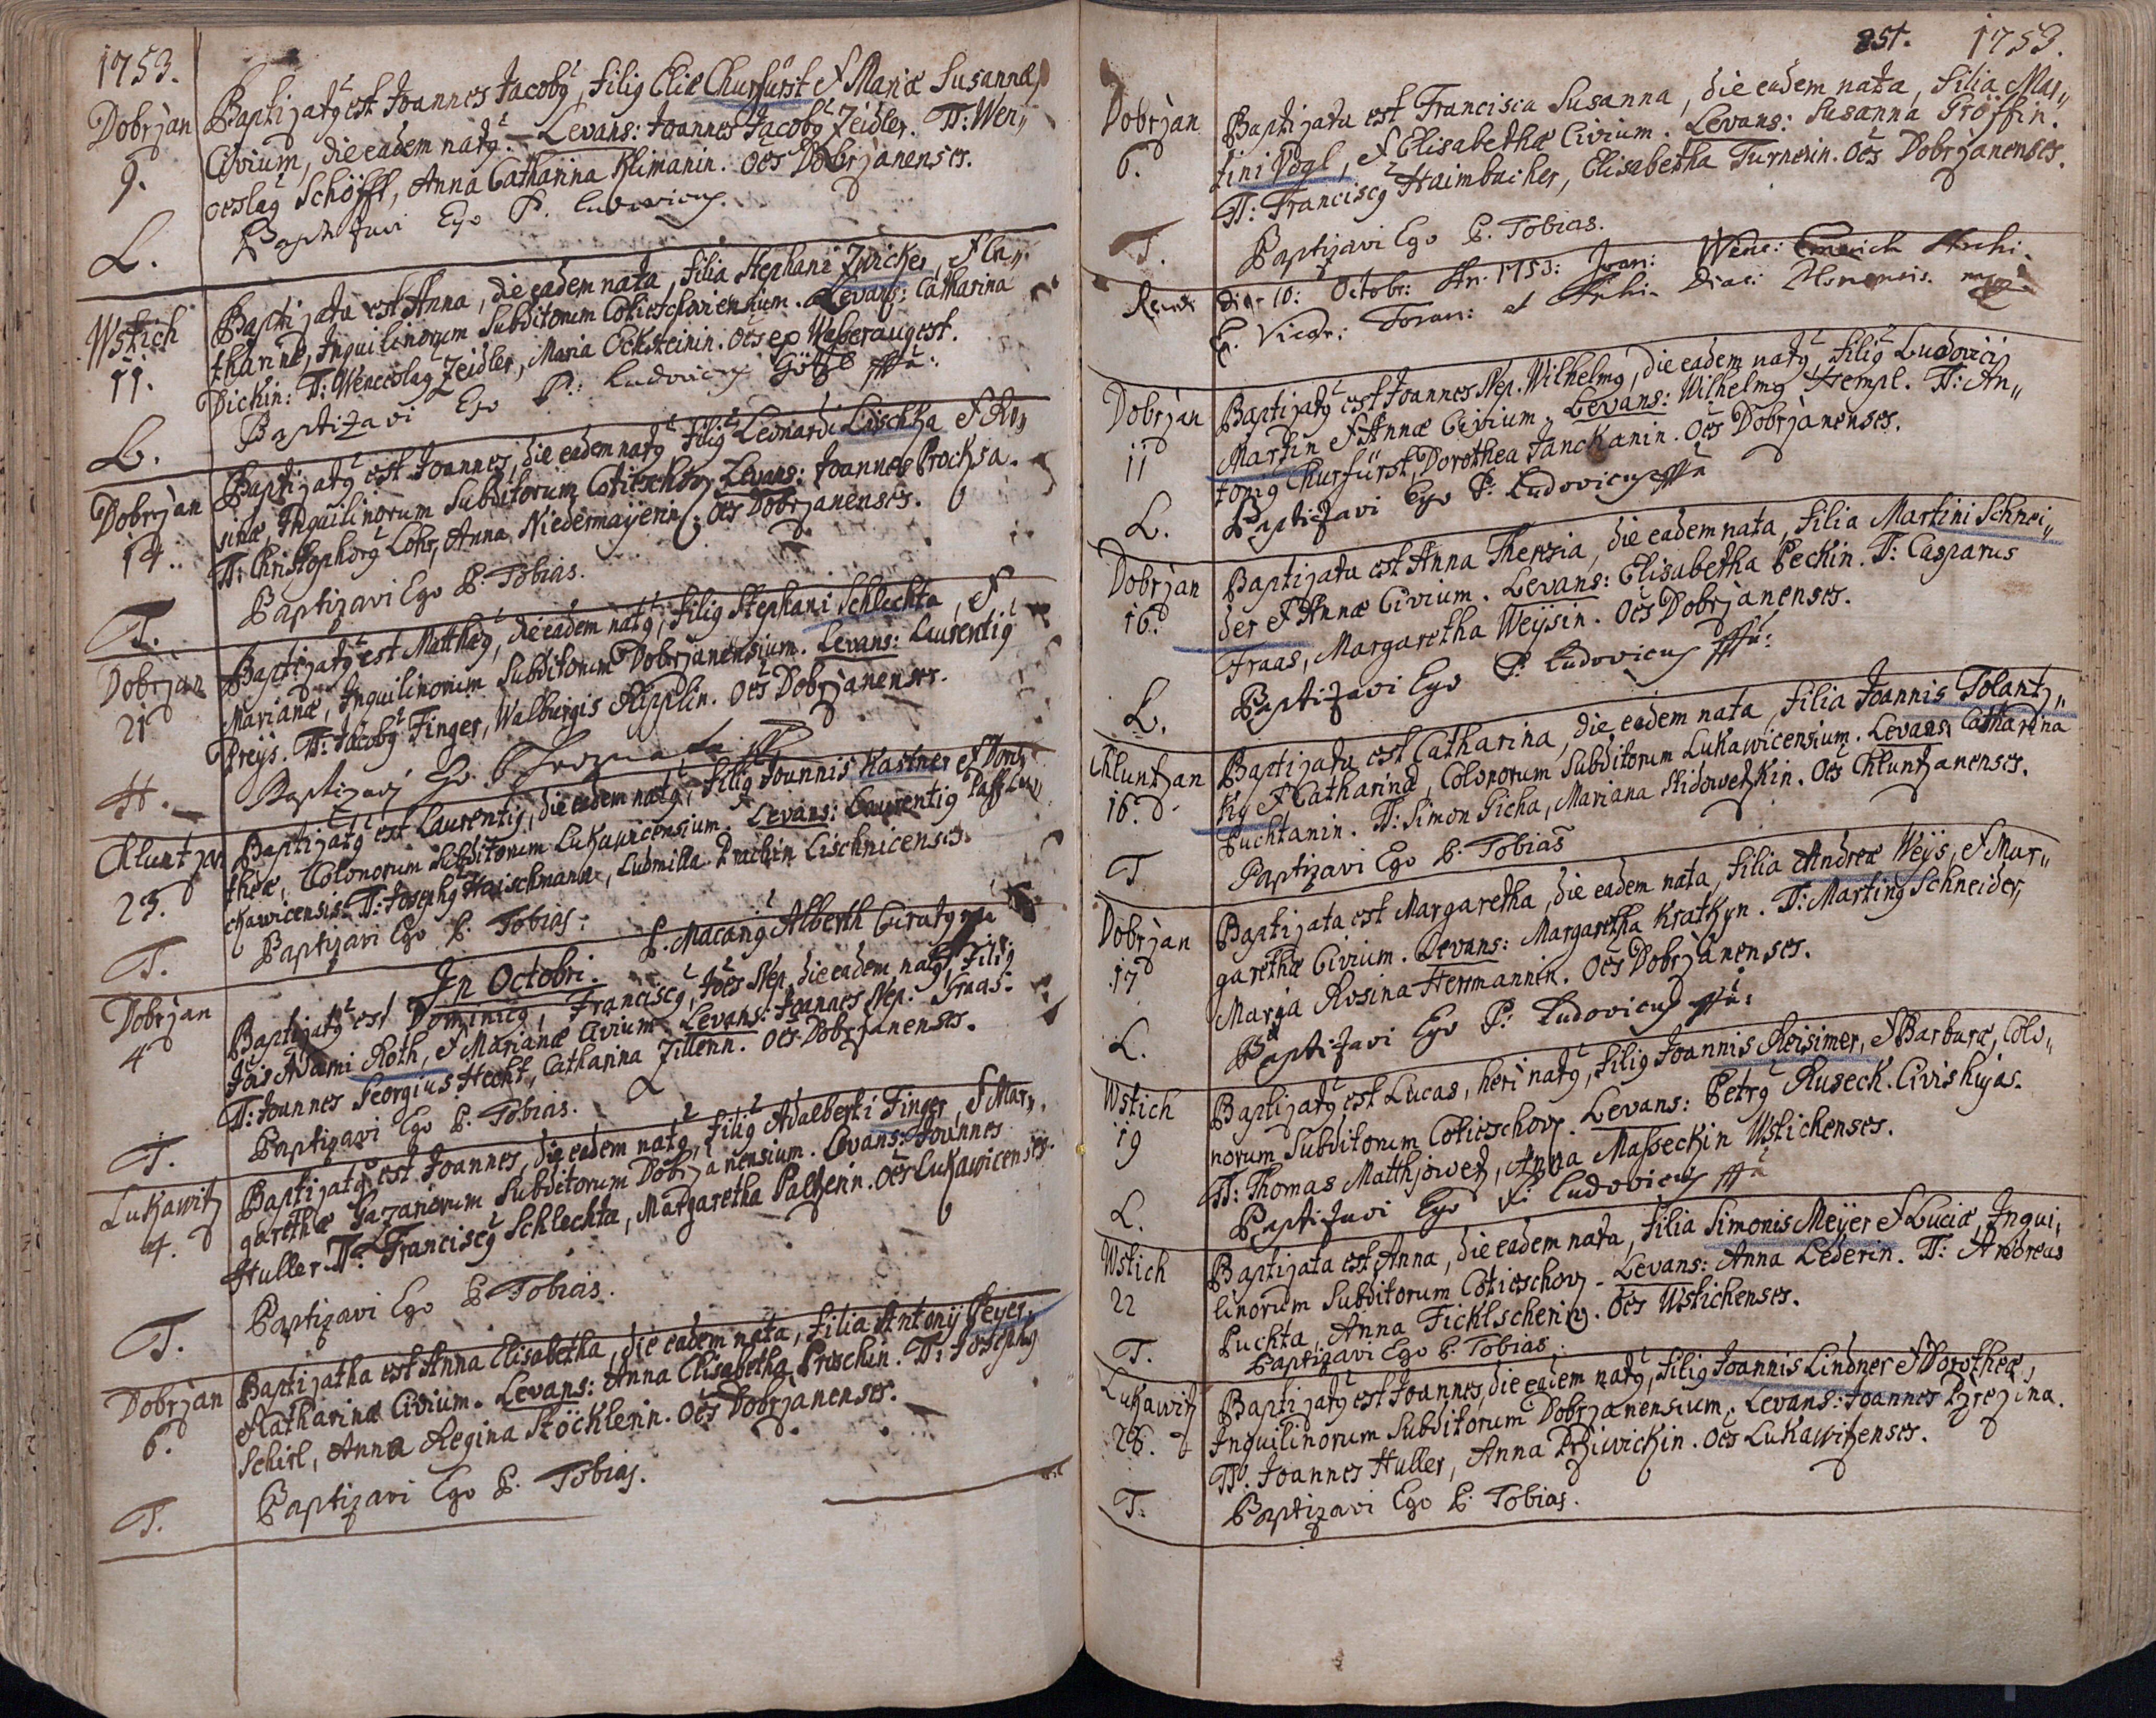 1753.
Dobrzan
9.
L.
Baptizatq est Joannes Jacobq, filiq Eliæ Churfürst & Mariæ Susannæ
Civium, die eadem natq. Levans: Joannes Jacobq Zeidler. TT: Wen„
ceslaq Schöffl, Anna Catharina Klimanin. Oēs Dobrzanenses.
Baptizavi Ego P. Ludovicq.
Wstich
11.
L.
Baptizata est Anna, die eadem nata, filia Stephani Zwicker, & Ca„
tharinæ, Inquilinorum Subditorum Cotieschoviensium. Levans: Catharina
Dickin: TT: Wenceslaq Zeidler, Maria Ecksteinin. Oēs ex Weberaugest.
Baptizavi Ego P: Ludovicq Götzl
Dobrzan
14.
T.
Baptizatq est Joannes, die eadem natq, filiq Leonardi Lischka & Ro„
sinæ, Inquilinorum Subditorum Cotieschov. Levans: Joannes Procksa.
TT: Christophorq Lohr, Anna Niedermayerin. Oēs Dobrzanenses.
Baptizavi Ego P. Tobias.
Dobrzan
21
H.
Baptizatq est Matthæq, die eadem natq, filiq Stephani Schlechta, &
Marianæ, Inquilinorum Subditorum Dobrzanensium. Levans: Laurentiq
Preys. TT: Jacobq Finger, Walburgis Ripplin. Oēs Dobrzanenses.
Baptizavi Ego P. Hroznata
Chluntzan
23.
T.
Baptizatq est Laurentiq, die eadem natq, filiq Joannis Kastner & Doro„
theæ, Colonorum Subditorum Lukawicensium. Levans: Laurentiq
ckawicensis. TT: Josephq Haischmann, Ludmilla Drachin Lischnicensis.
Baptizavi Ego P. Tobias.
In Octobri. P. Macariq Alberth Curatq
Dobrzan
4
T.
Baptizatq est Dominicq, Franciscq, Joēs Nep. die eadem natq, filiq
Jōis Adami Roth, & Marianæ Civium. Levans: Joannes Nep. Fraas.
TT: Joannes Georgius Hecht, Catharina Zillerin. Oēs Dobrzanenses.
Baptizavi Ego P. Tobias.
Lukawitz
4.
T.
Baptizatq est Joannes, die eadem natq, filiq Adalberti Finger, & Mar„
garethæ Gazariorum Subditorum Dobrzanensium. Levans: Joannes
Huller. TT: Franciscq Schlechta, Margaretha Paltzerin. Oēs Lukawicenses.
Baptizavi Ego P. Tobias.
Dobrzan
6.
T.
Baptizatha est Anna Elisabetha, die eadem nata, filia Antonij Peyer,
& Catharinæ Civium. Levans: Anna Elisabetha Proschin. TT: Josephq
Schisl, Anna Regina Stöcklerin. Oēs Dobrzanenses.
Baptizavi Ego P. Tobias.
251. 1753.
Dobrzan
6.
T.
Baptizata est Francisca Susanna, die eadem nata, filia Mar„
tini Vogl, & Elisabethæ Civium. Levans: Susanna Gröffin.
TT: Franciscq Haimbacher, Elisabetha Turnerin. Oēs Dobrzanenses.
Baptizavi Ego P. Tobias.
die 10: Octobr: An: 1753: Joan: Wenc:
P. Vicar: Foran: et Archi-Diac: Plsnensis. mpp
Dobrzan
11
L.
Baptizatq est Joannes Nep. Wilhelmq, die eadem natq, filiq Ludovici
Martin & Annæ Civium. Levans: Wilhelmq Hempl. TT: An„
toniq Churfürst, Dorothea Janckanin. Oēs Dobrzanenses.
Baptizavi Ego P. Ludovicq
Dobrzan
16.
L.
Baptizata est Anna Theresia, die eadem nata, filia Martini Schnei„
der & Annæ Civium. Levans: Elisabetha Peckin. T: Casparus
Fraas, Margaretha Weysin. Oēs Dobrzanenses.
Baptizavi Ego P. Ludovicq
Chluntzan
16.
T
Baptizata est Catharina, die eadem nata, filia Joannis Tolantz„
kij & Catharinæ, Colonorum Subditorum Lukawicensium. Levans: Catharina
Puchtanin. TT: Simon Gicha, Mariana Slidowetzkin. Oēs Chluntzanenses.
Baptizavi Ego P. Tobias
Dobrzan
17
L.
Baptizata est Margaretha, die eadem nata, filia Andreæ Weÿs, & Mar„
garethæ Civium. Levans: Margaretha Kratkyn. TT: Martinq Schneider,
Maria Rosina Herrmannin. Oēs Dobrzanenses.
Baptizavi Ego P. Ludovicq
Wstich
19
L.
Baptizatq est Lucas, heri natq, filiq Joannis Reisimer, & Barbaræ, Colo„
norum Subditorum Cotieschov. Levans: Petrq Ruseck. Civis hujas.
TT: Thomas Matthjowetz, Anna Masseckin Wstichenses.
Baptizavi Ego P. Ludovicq
Wstich
22
T.
Baptizata est Anna, die eadem nata, filia Simonis Meÿer & Luciæ, Inqui„
linorum Subditorum Cotieschov. Levans: Anna Lederin. TT: Andreas
Puchta, Anna Ficklscherin. Oēs Wstichenses.
Baptizavi Ego P. Tobias.
Lukawitz
26.
T.
Baptizatq est Joannes, die eadem natq, filiq Joannis Lindner & Dorotheæ,
Inquilinorum Subditorum Dobrzanensium. Levans: Joannes Brzezina.
TT. Joannes Huller, Anna Dziwickin. Oēs Lukawitzenses.
Baptizavi Ego P. Tobias.